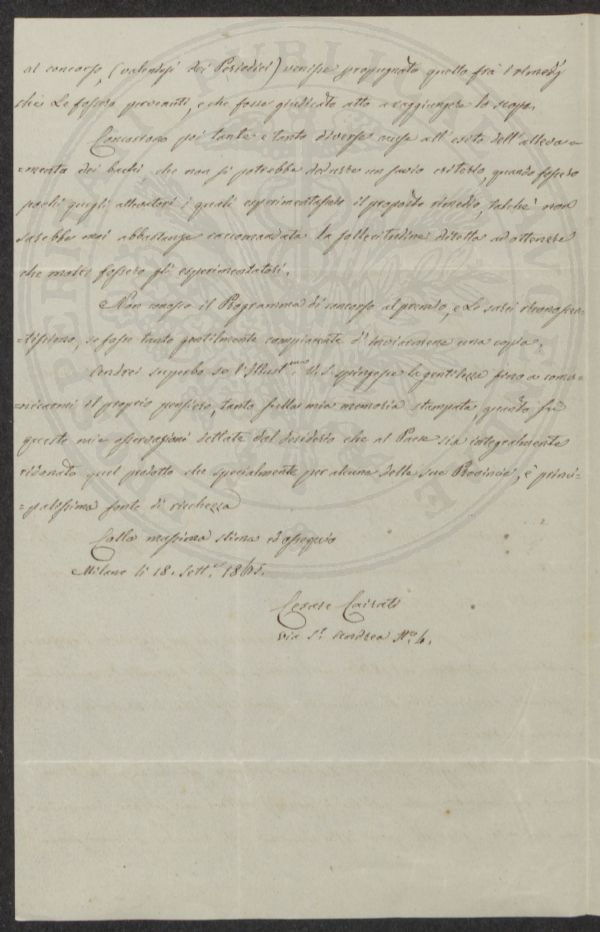 al concorso, (valendosi dei Periodici) venisse propugnato quello fra i rimedj
che Le fossero pervenuti, e che fosse giudicato atto a raggiungere lo scopo.
Concorrono poi tante e tanto diverse cause all'esito dell'alleva-
-mento dei bachi che non si potrebbe dedurre un savio criterio, quando fossero
pochi quegli allevatori i quali esperimentassero il proposto rimedio, talchè non
sarebbe mai abbastanza raccomandata la sollecitudine diretta ad ottenere
che molti fossero gli esperimentatori.
Non conosco il Programma di concorso al premio, e Le sarei riconoscen-
-tissimo, se fosse tanto gentilmente compiacente di inviarmene una copia.
Andrei superbo se l'Illust.ma V. S. spingesse la gentilezza fino a comu-
-nicarmi il proprio pensiero, tanto sulla mia memoria stampata, quanto su
queste mie osservazioni dettate dal desiderio che al Paese sia integralmente
ridonato quel prodotto che specialmente per alcune delle sue Provincie, è princi-
-palissima fonte di ricchezza
Colla massima stima ed ossequio
Milano li 18. Sett.e 1865.
Cesare Cairati
via S.t Andrea N.o 4.